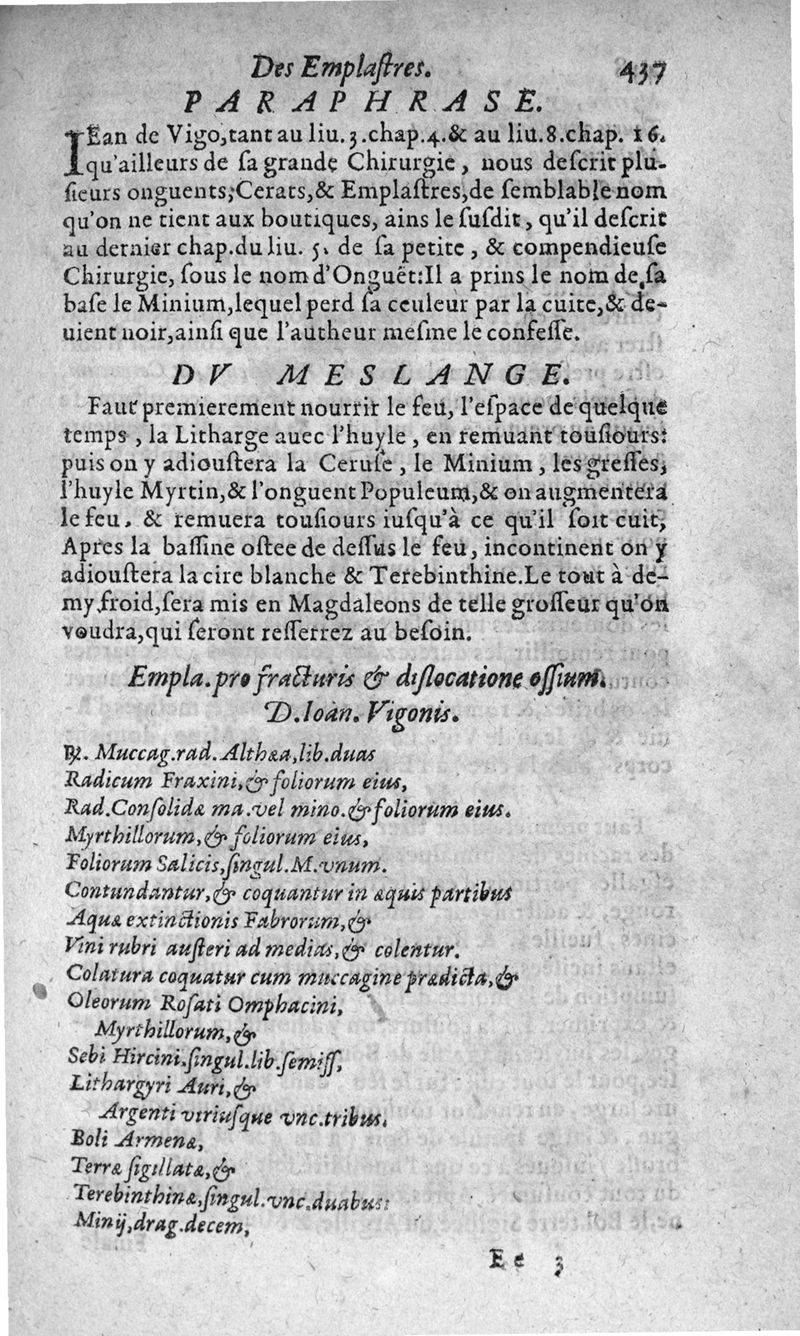 Des Emplaſtres. 437
PARAPHRASE.
IEan de Vigo,tant au liu.3.chap.4.& au liu.8.chap. 16.
qu'ailleurs de ſa grande Chirurgie, nous deſcrit plu-
ſieurs onguents,Cerats,& Emplaſtres,de ſemblable nom
qu'on ne tient aux boutiques, ains le ſuſdit, qu'il deſcrit
au dernier chap.du liu. 5. de ſa petite, & compendieuſe
Chirurgie, ſous le nom d'Onguēt:Il a prins le nom de ſa
baſe le Minium,lequel perd ſa couleur par la cuite,& de-
uient noir,ainſi que l'autheur meſme le confeſſe.
DV MESLANGE.
Faut premierement nourrir le feu, l'eſpace de quelque
temps, la Litharge auec l'huyle, en remuant touſiours:
puis on y adiouſtera la Ceruſe, le Minium, les greſſes,
l'huyle Myrtin,& l'onguent Populeum,& on augmentera
le feu, & remuera touſiours iuſqu'à ce qu'il ſoit cuit,
Apres la baſſine oſtee de deſſus le feu, incontinent on y
adiouſtera la cire blanche & Terebinthine.Le tout à de-
my froid,ſera mis en Magdaleons de telle groſſeur qu'on
voudra,qui ſeront reſſerrez au beſoin.
Empla.pro fracturis & diſlocatione oſſium.
D.Ioan. Vigonis.
℞. Muccag.rad. Althææ,lib.duas
Radicum Fraxini,& foliorum eius,
Rad.Conſolidæ ma.vel mino.& foliorum eius.
Myrthillorum,& foliorum eius,
Foliorum Salicis,ſingul.M.vnum.
Contundantur,& coquantur in æquis partibus
Aquæ extinctionis Fabrorum,&
Vini rubri auſteri ad medias,& colentur.
Colatura coquatur cum muccagine prædicta,&
Oleorum Roſati Omphacini,
Myrthillorum,&
Sebi Hircini.ſingul.lib.ſemiſſ,
Lithargyri Auri,&
Argenti vtriuſque vnc.tribus.
Boli Armenæ,
Terræ ſigillatæ,&
Terebinthinæ,ſingul.vnc.duabus:
Minij,drag.decem,
Ee 3